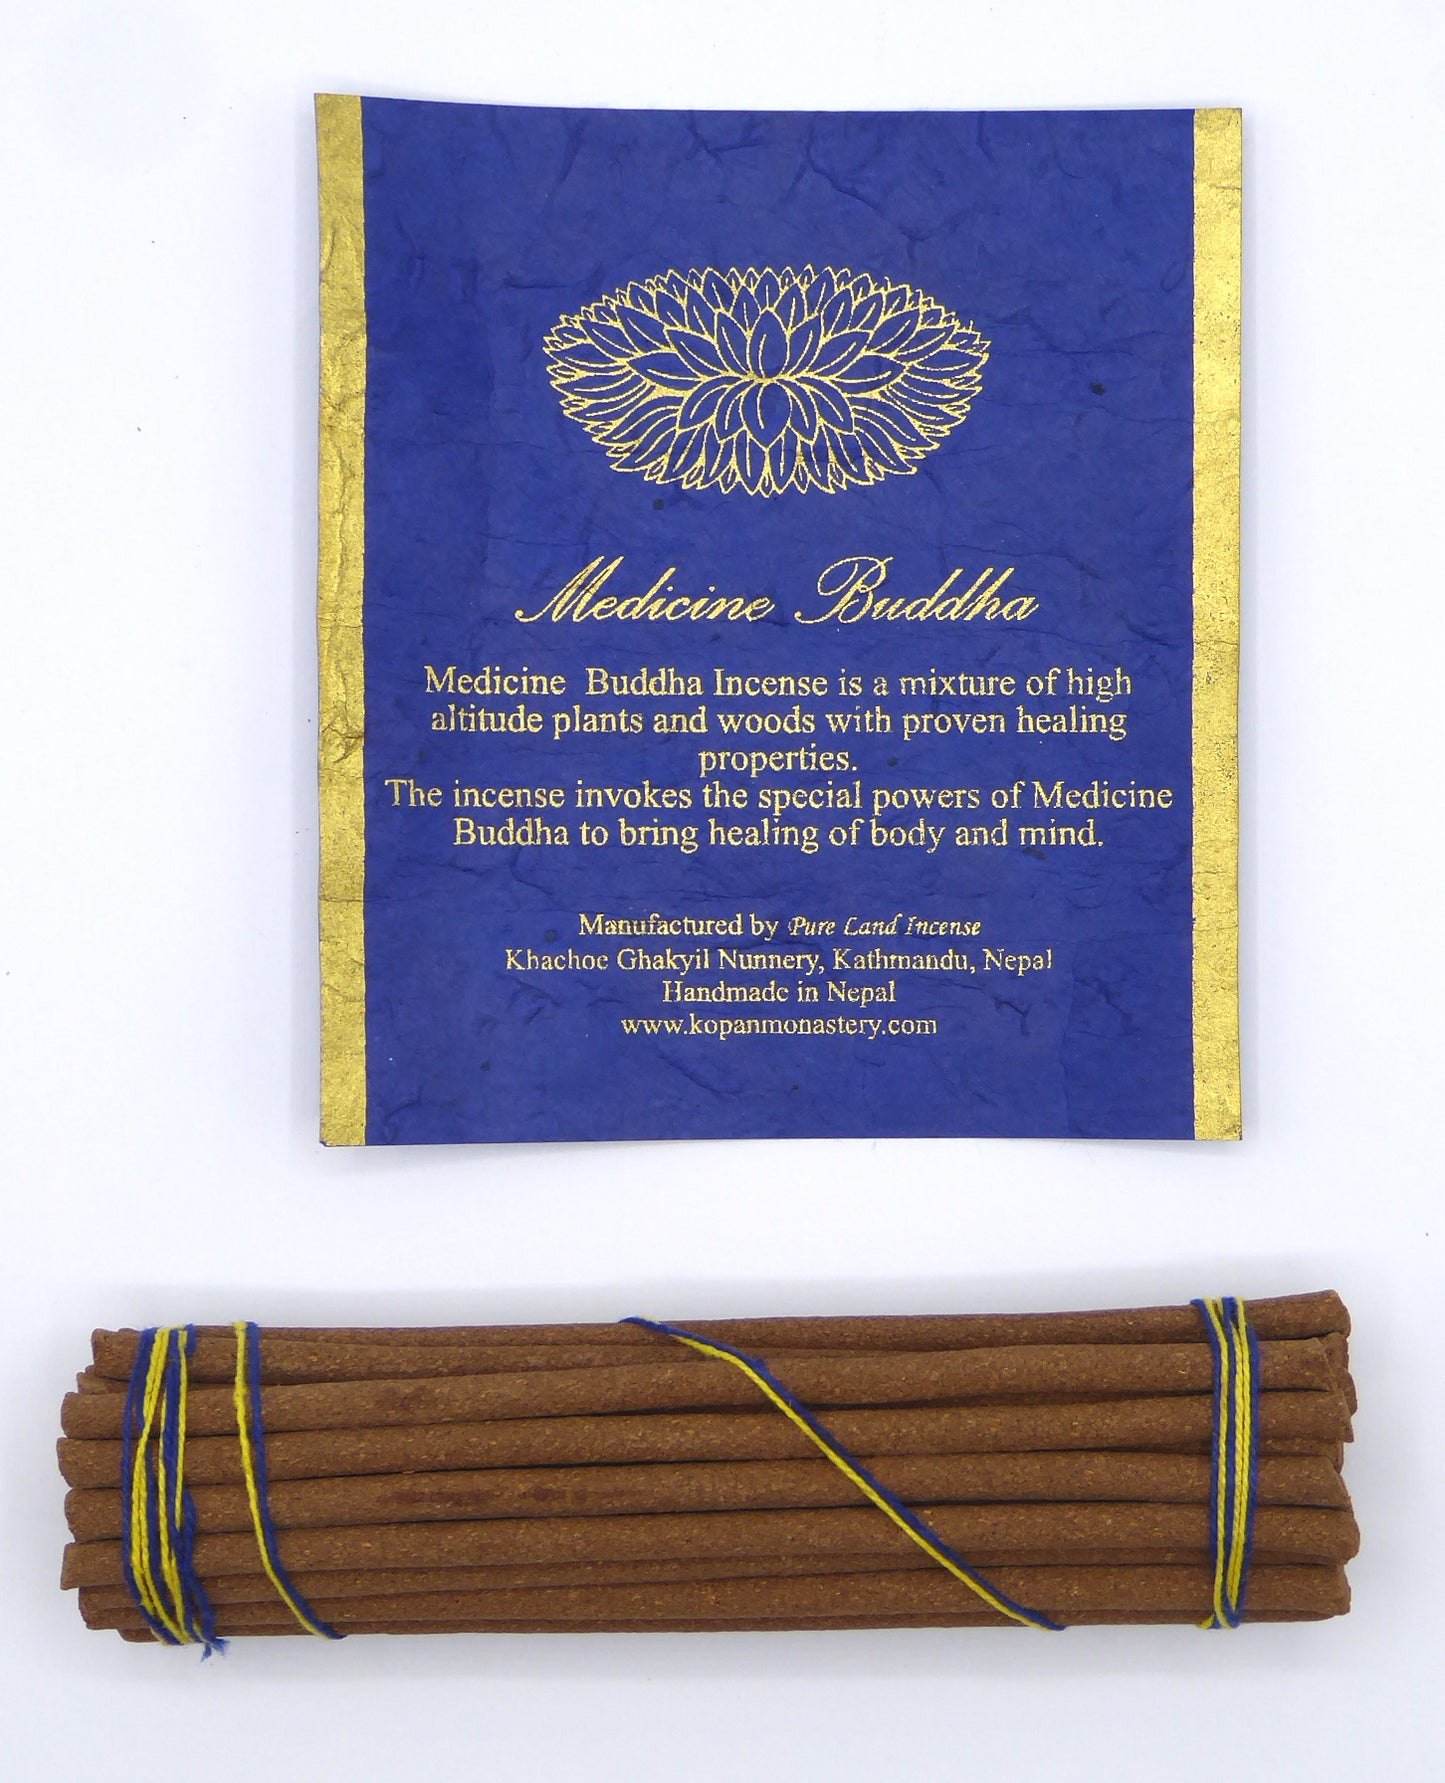 Medicine Buddha
Medicine Buddha Incense is a mixture of high
altitude plants and woods with proven healing
properties.
The incense invokes the special powers of Medicine
Buddha to bring healing of body and mind.
Manufactured by Pure Land Incense
Khachoe Ghakyil Nunnery, Kathmandu, Nepal
Handmade in Nepal
www.kopanmonastery.com